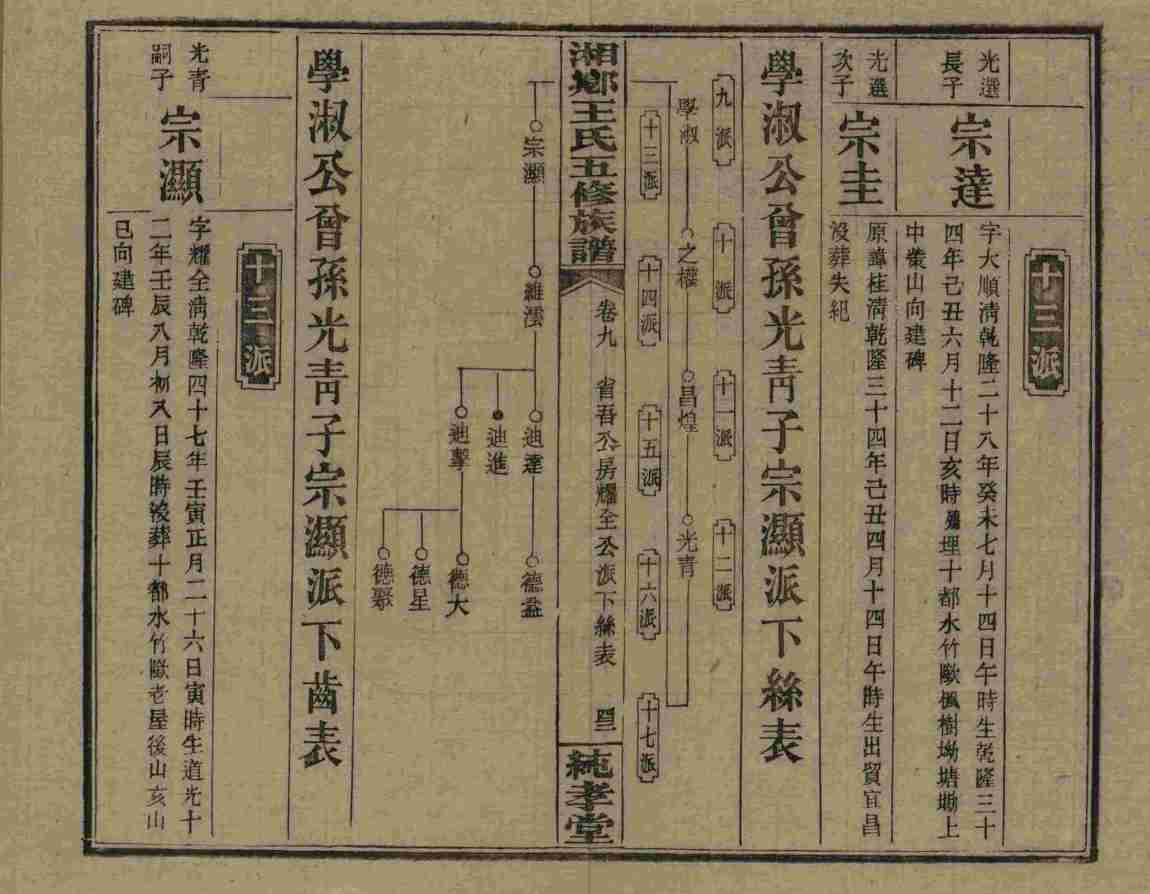 十三派
光選
長子
宗達
字大順清乾隆二十八年癸未七月十四日午時生乾隆三十
四年己丑六月十二日亥時殤埋十都水竹歐楓樹坳塘墈上
中棠山向建碑
光選
次子
宗圭
原諱桂清乾隆三十四年己丑四月十四日午時生出貿宜昌
沒葬失紀
學淑公曾孫光青子宗灝派下絲表
九派
十派
十一派
十二派
學淑
之權
昌煌
光青
十三派
十四派
十五派
十六派
十七派
湘鄉王氏五修族譜
卷九
省吾公房耀全公派下絲表
純孝堂
宗灝
維濚
迪達
德益
迪進
迪擊
德大
德星
德聚
學淑公曾孫光青子宗灝派下齒表
十三派
光青
嗣子
宗灝
字耀全清乾隆四十七年壬寅正月二十六日寅時生道光十
二年壬辰八月初八日辰時沒葬十都水竹歐老屋後山亥山
巳向建碑